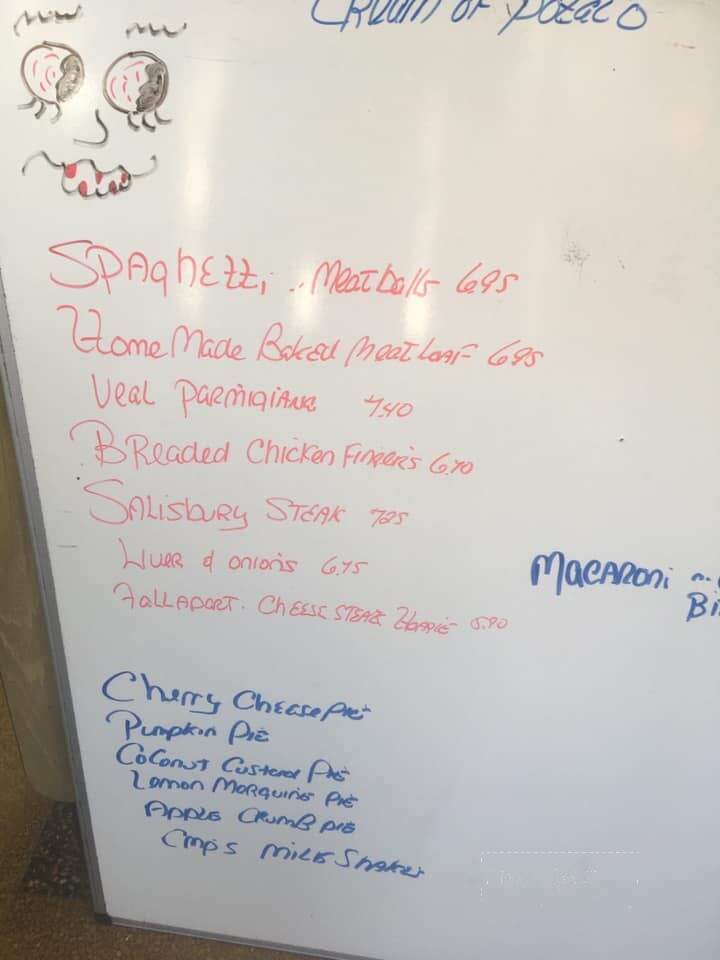 CREAM OF POTATO
SPAGhEtti .. Meatballs 6.95
HomeMade Baked MeatLoaf 6.95
Veal Parmigiana 7.40
BReaded Chicken Fingers 6.70
SALisbury STEAK 7.25
Liver & onions 6.75
CHEESE STEAK Hoagie 5.90
MACARONi
Bi
Cherry Cheese Pie
Pumpkin Pie
COCONUT Custard Pie
Lemon Morquine Pie
Apple CRumB Pie
Cmp's MILK Shakes